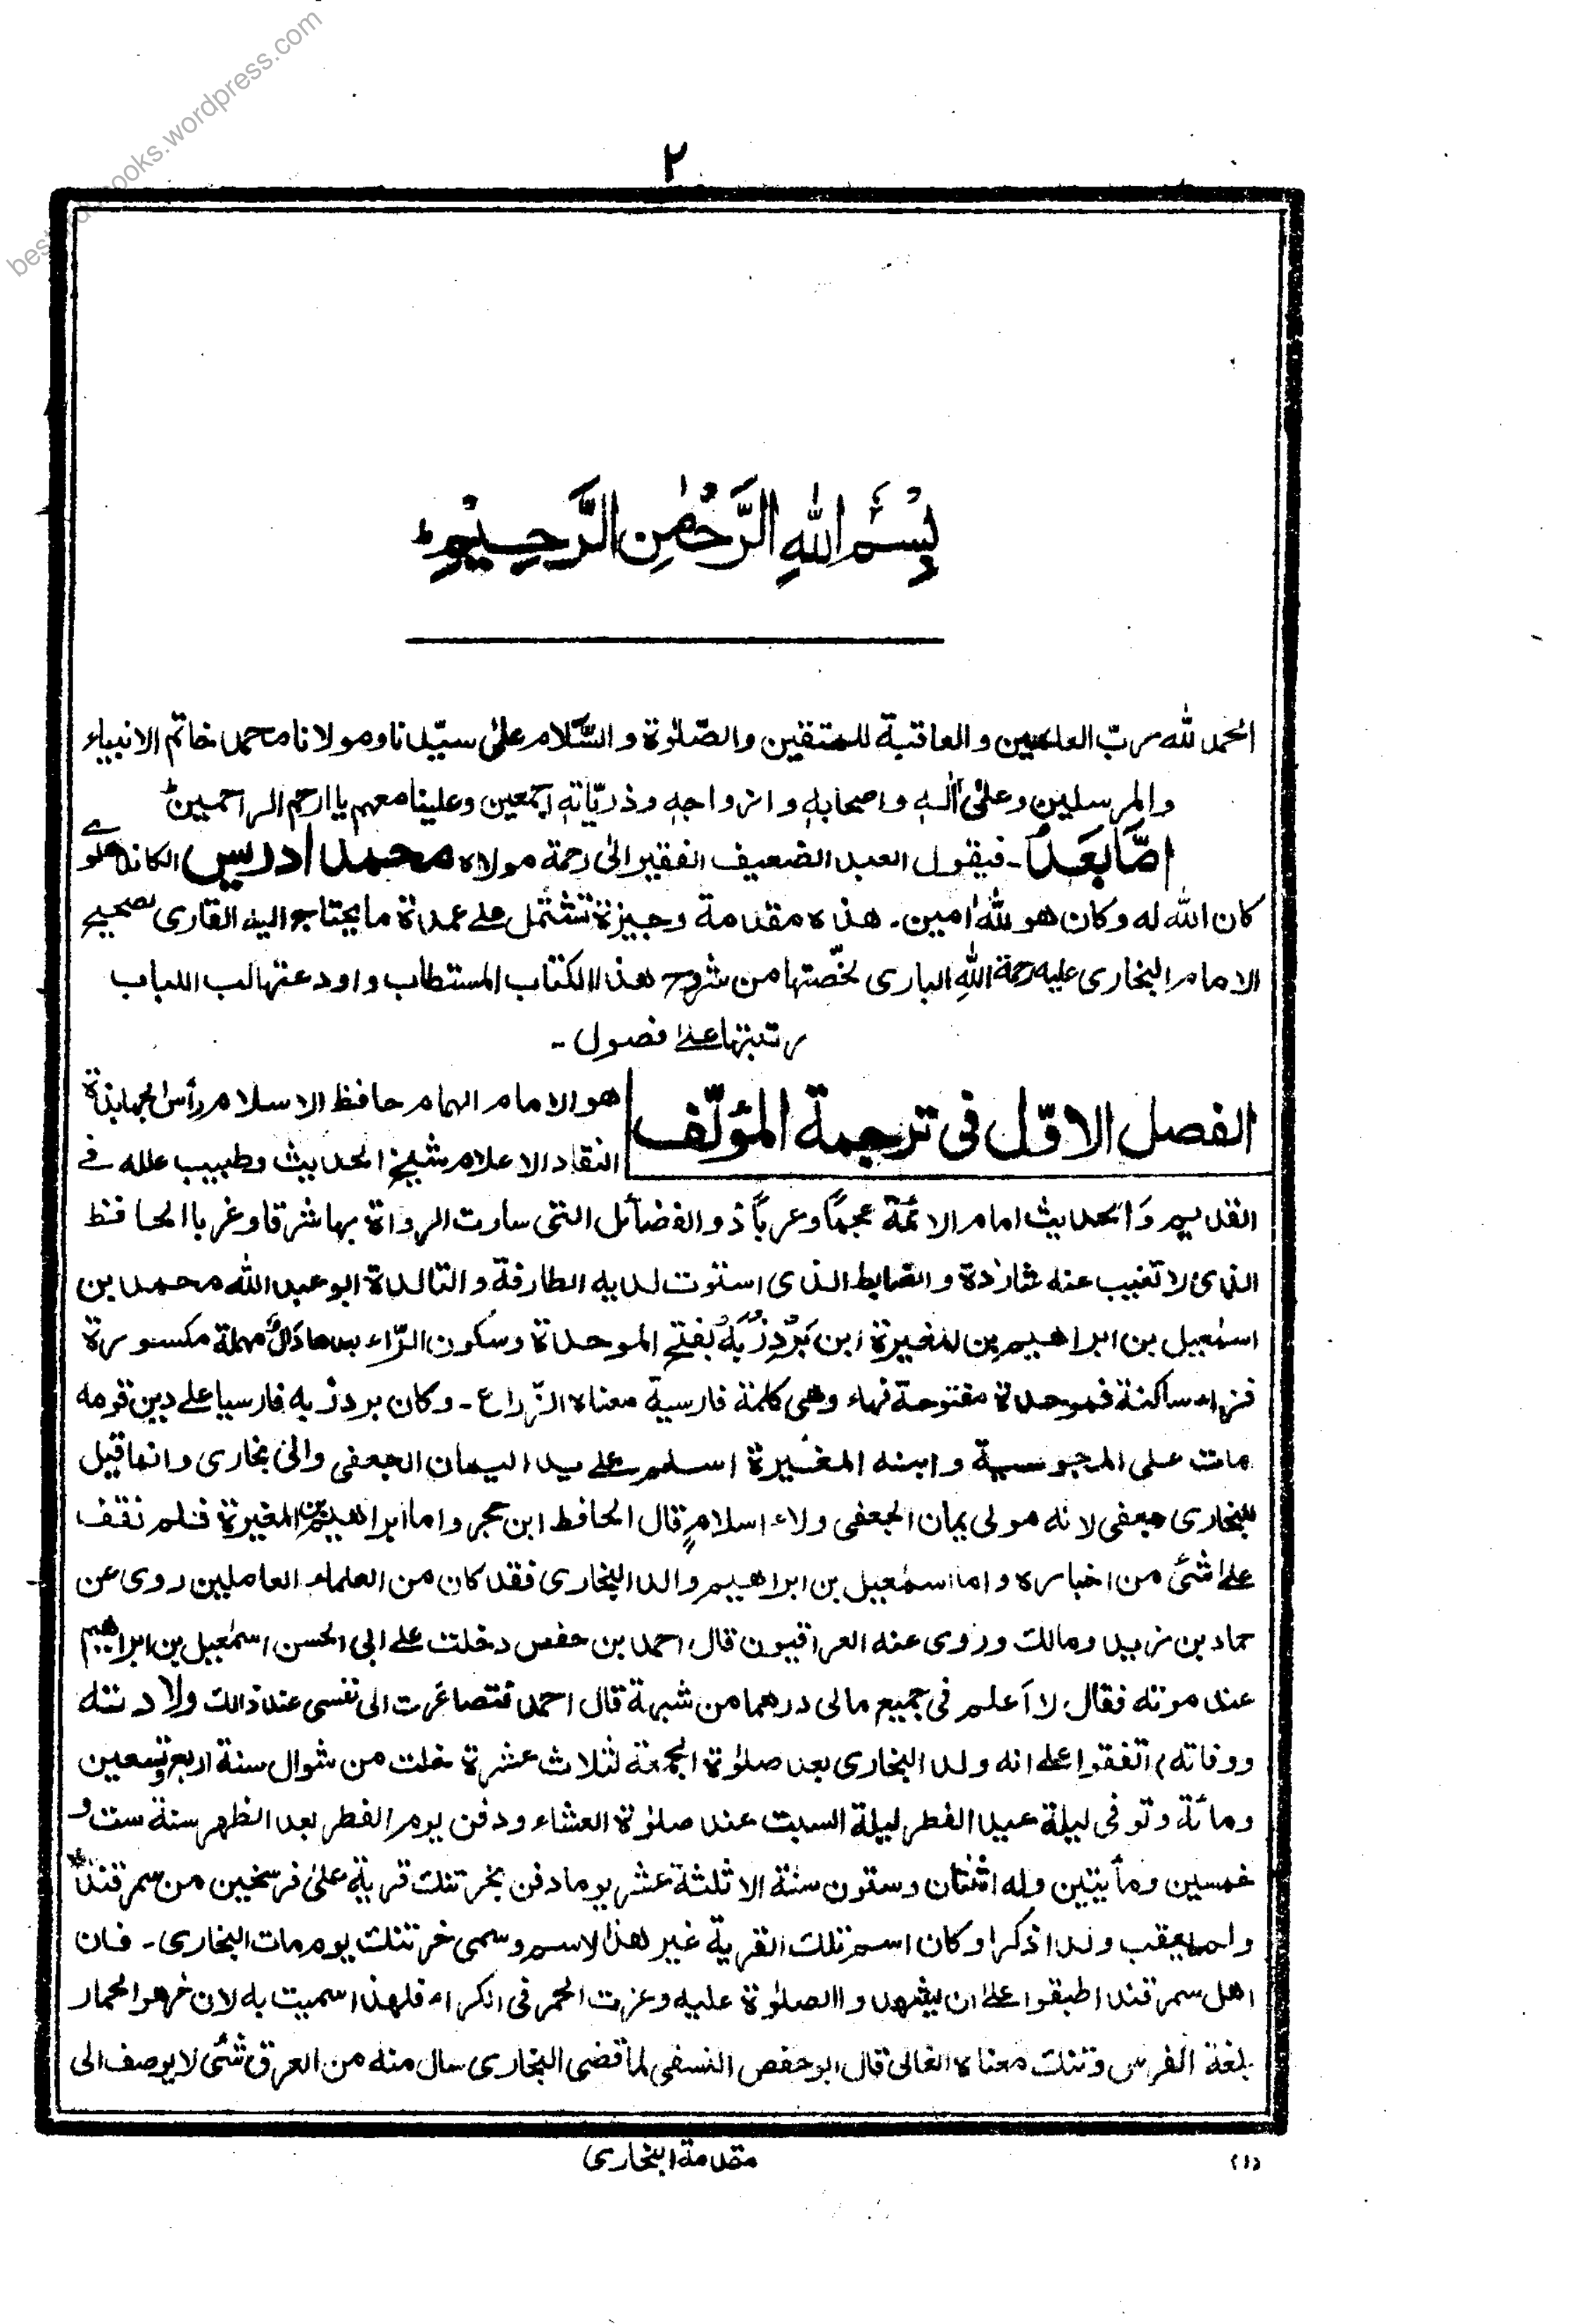 besturdubooks.wordpress.com
٢
بِسْمِ اللهِ الرَّحْمٰنِ الرَّحِيْمِ
الحمد لله رب العلمين والعاقبة للمتقين والصّلوٰة والسَّلام علىٰ سيّدنا ومولانا محمد خاتم الانبياء
والمرسلين وعلىٰ اٰلهٖ واصحابهٖ وازواجهٖ وذريّاتهٖ اجمعين وعلينا معهم يا ارحم الراحمين ط
امَّا بَعَدُ۔ فيقول العبد الضعيف الفقير الىٰ رحمة مولاه محمد ادريس الكاندهلوے
كان الله له وكان هو للهٰ اٰمين۔ هذه مقدمة وجيزة تشتمل علے عمدة ما يحتاج اليه القارى لصحيح
الامام البخارى عليه رحمة اللهِ البارى لخّصتها من شروح هذا الكتاب المستطاب واودعتها لب اللباب
رتبتها علےٰ فصول ۔
الفصل الاوّل فى ترجمة المؤلّف
هو الامام الهمام حافظ الاسلام رأس الجهابذة
النقاد الاعلام شيخ الحديث وطبيب علله فے
القديم وَالحديث امام الائمّة عجمًا وعربًا ذو الفضائل التى سارت الرواة بها شرقا وغربا الحافظ
الذى لا تغيب عنه شاردة والضابط الذى استوت لديه الطارفة والتالدة ابو عبد الله محمد بن
اسمٰعيل بن ابراهيم بن المغيرة ابن بَرْدِزْبَهْ بفتح الموحدة وسكون الرّاء بعدها دالٌ مهملة مكسورة
فزاء ساكنة فموحدة مفتوحة فهاء وهى كلمة فارسية معناه الزّراع ۔ وكان بردزبه فارسيا علے دين قومه
مات على المجوسية وابنه المغيرة اسلم علے يد اليمان الجعفى والى بخارى وانما قيل
للبخارى جعفى لانه مولى يمان الجعفى ولاء اسلامٍ قال الحافظ ابن حجر واما ابراهيم بن المغيرة فلم نقف
علےٰ شئ من اخباره واما اسمٰعيل بن ابراهيم والد البخارى فقد كان من العلماء العاملين روى عن
حماد بن زيد ومالك وروى عنه العراقيون قال احمد بن حفص دخلت علے ابى الحسن اسمٰعيل بن ابراهيم
عند موته فقال لا اَعلم فى جميع مالى درهما من شبهة قال احمد فتصاغرت الى نفسى عند ذالك ولادته
ووفاته) اتفقوا علےٰ انه ولد البخارى بعد صلوٰة الجمعة لثلاث عشرة خلت من شوال سنة اربع وتسعين
ومائة وتوفى ليلة عيد الفطر ليلة السبت عند صلوٰة العشاء ودفن يوم الفطر بعد الظهر سنة ست و
خمسين ومأيتين وله اثنتان وستون سنة الا ثلثة عشر يوما دفن بخرتنك قرية علىٰ فرسخين من سمرقند
ولم يعقب ولدا ذكرا وكان اسم تلك القرية غير هذا الاسم وسمى خرتنك يوم مات البخارى ۔ فان
اهل سمرقند اطبقوا علےٰ ان يشهدوا الصلوٰة عليه وعزت الحمر فى الكراء فلهذا سميت به لان خر هو الحمار
بلغة الفرس وتنك معناه الغالى قال ابو حفص النسفى لما قضى البخارى سال منه من العرق شئ لا يوصف الى
(١)
مقدمة البخارى